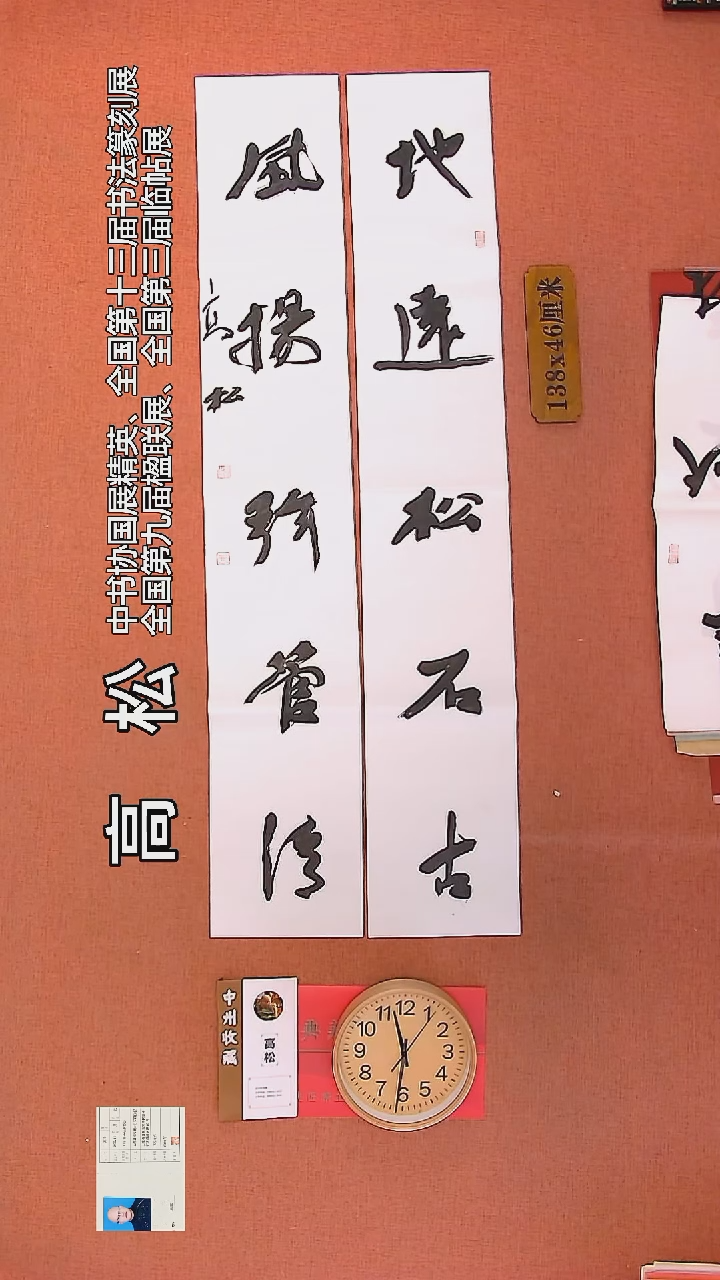 高 松
中书协国展精英、全国第十三届书法篆刻展
全国第九届楹联展、全国第三届临帖展
地遠松石古
風揚弦管清
高松
138x46厘米
高松
12
1
2
3
4
5
6
7
8
9
10
11